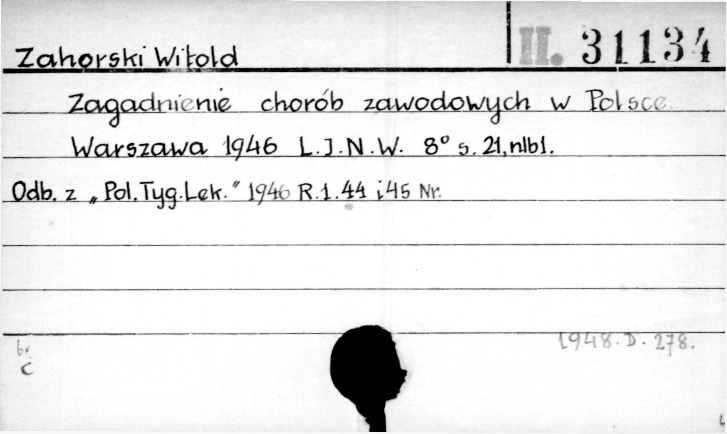 Zahorski Witold II. 31134
Zagadnienie chorób zawodowych w Polsce
Warszawa 1946 L.J.N.W. 8° s. 21, nlb1.
Odb. z „Pol. Tyg. Lek." 1946 R.1. 44 i 45 Nr.
1948. D. 278.
br.
C